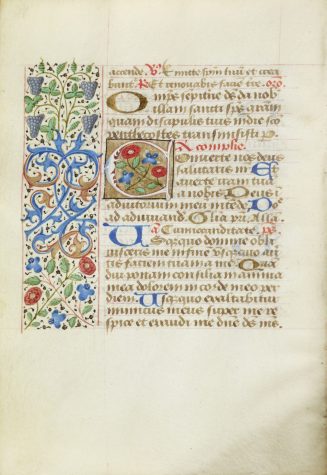 accende. V. Emitte spm tuu et crea
bunt. R. Et renovabis facie tre. oro.
Omps sempitne ds da nob
illam sancti sps gram
quam discipulis tuis in die sco
penthecostes transmisisti p.
A complie.
Converte nos deus
salutaris nr. Et
averte iram tua
a nobis. Deus i
adiutorium meu inte. Do
ad adiuvand. Glia pri. Alla.
Cum iocunditate. ps
Usquequo domine obli
visceris me in fine vsquequo aver
tis faciem tuam a me. Qua
diu ponam consilia in anima
mea dolorem in corde meo per
diem. Usquequo exaltabitur
inimicus meus super me re
spice et exaudi me dne ds me.